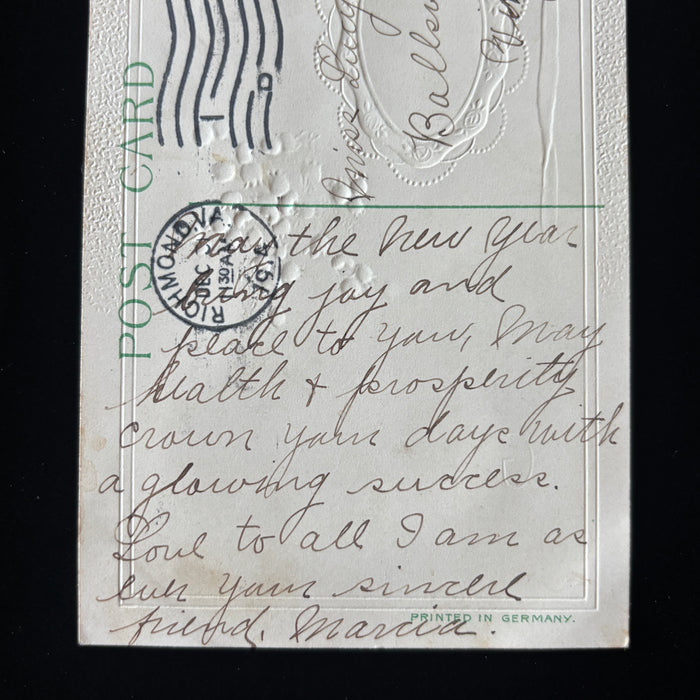 POST CARD
RICHMOND, VA.
DEC
130 A
D
I
Miss
Balls
May the New Year
bring joy and
peace to you, May
health & prosperity
crown your days with
a glowing success.
Love to all I am as
ever your sincere
friend. Marcia.
PRINTED IN GERMANY.